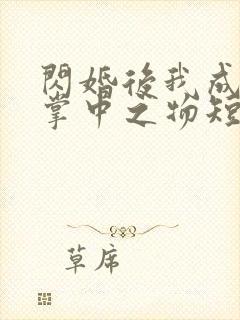 閃婚後我成
掌中之物短
草席